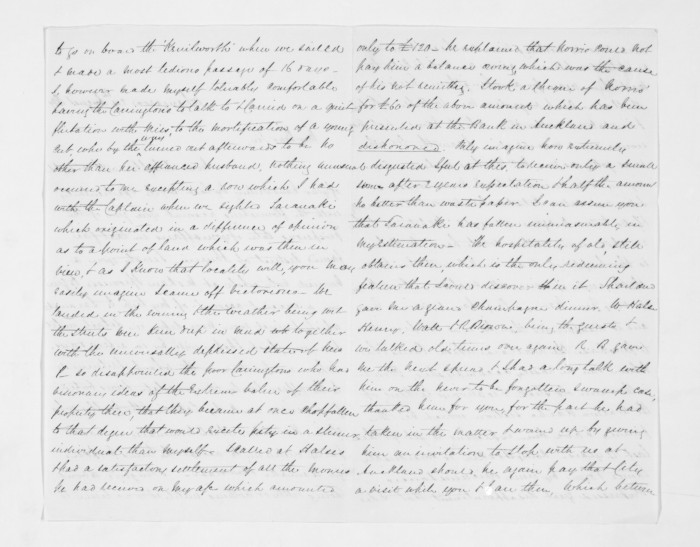 to go on board the 'Kenilworth' when we sailed
& made a most tedious passage of 16 days -
I, however made myself tolerably comfortable
having the Carringtons to talk to & carried on a quiet
flirtation with Miss to the mortification of a young
who by the turned out afterwards to be no
other than her affianced husband, nothing unusual
occurred to me excepting a row which I had
with the Captain when we sighted Taranaki
which originated in a difference of opinion
as to a point of land which was then in
view, & as I know that locality well, you may
easily imagine I came off victorious - We
landed in the evening & the weather being wet
the streets were knee deep in mud wh together
with the universally depressed state of New
P. so disappointed the poor Carringtons who had
visionary ideas of the extreme value of their
property there that they became at once chopfallen
to that degree that would excite pity in a sterner
individual than myself - I called at Halse's
& had a satisfactory settlement of all the monies
he had received on my a/c which amounted
only to £120 - he explained that Norris could not
pay him a balance owing, which was the cause
of his not remitting. I took a cheque of Norris'
for £60 of the above amount which has been
presented at the Bank in Auckland and
dishonored. Only imagine how extremely
disgusted I feel at this, to receive only a small
sum after 2 years expectation & half the amount
no better than waste paper. I can assure you
that Taranaki has fallen immeasurably in
my estimation - The hospitality of old, still
obtains there, which is the only redeeming
feature that I could discover in it.
gave me a grand Champagne dinner. W Halse
Henry, Watt & R Brown being the guests &
we talked old times over again R. B. gave
me the next spread & I had a long talk with
him on the never to be forgotten swamp case,
thanked him for you, for the part he had
taken in the matter & wound up by giving
him an invitation to stop with us at
Auckland should he again pay that City
a visit while you & I are there, Which between